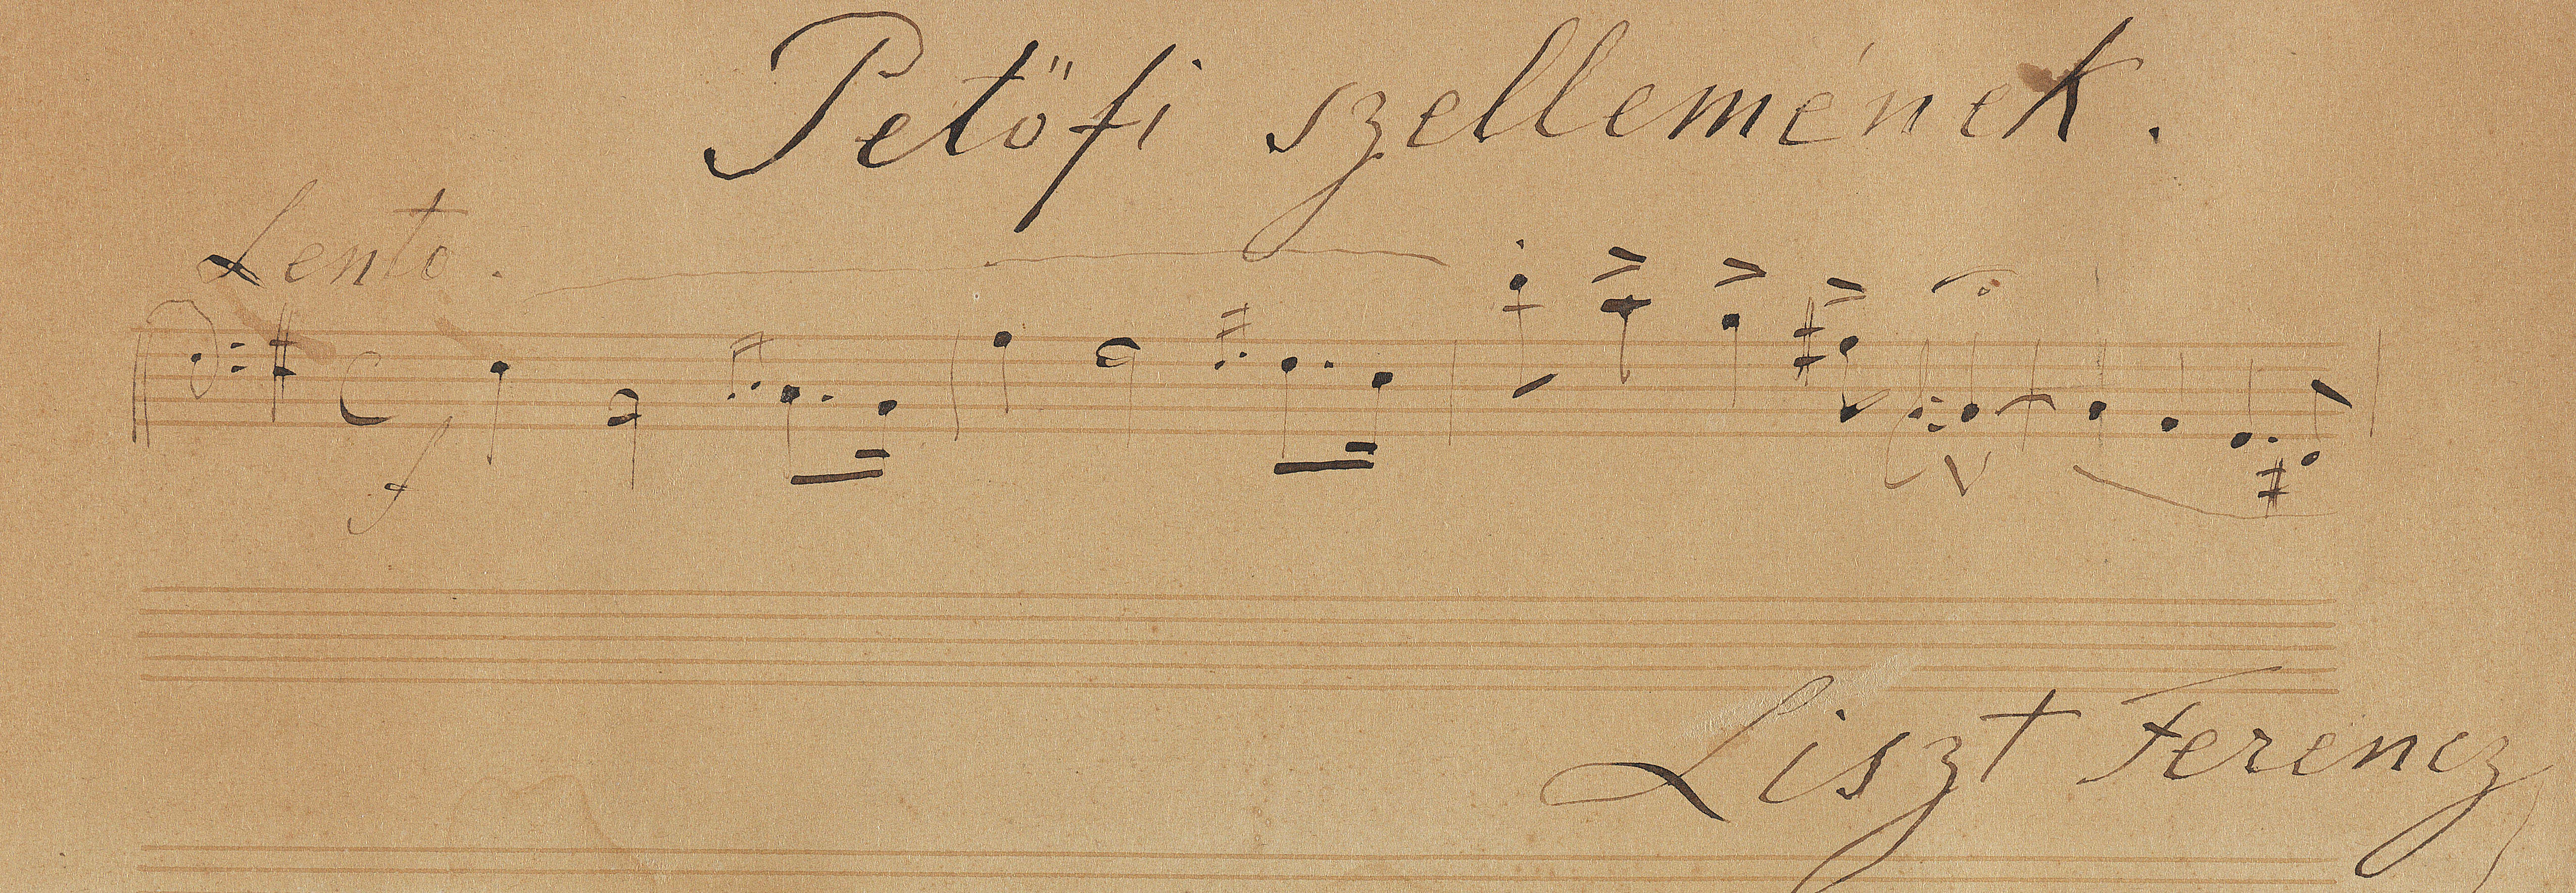 Petőfi szellemének.
Lento.
f
Liszt Ferencz